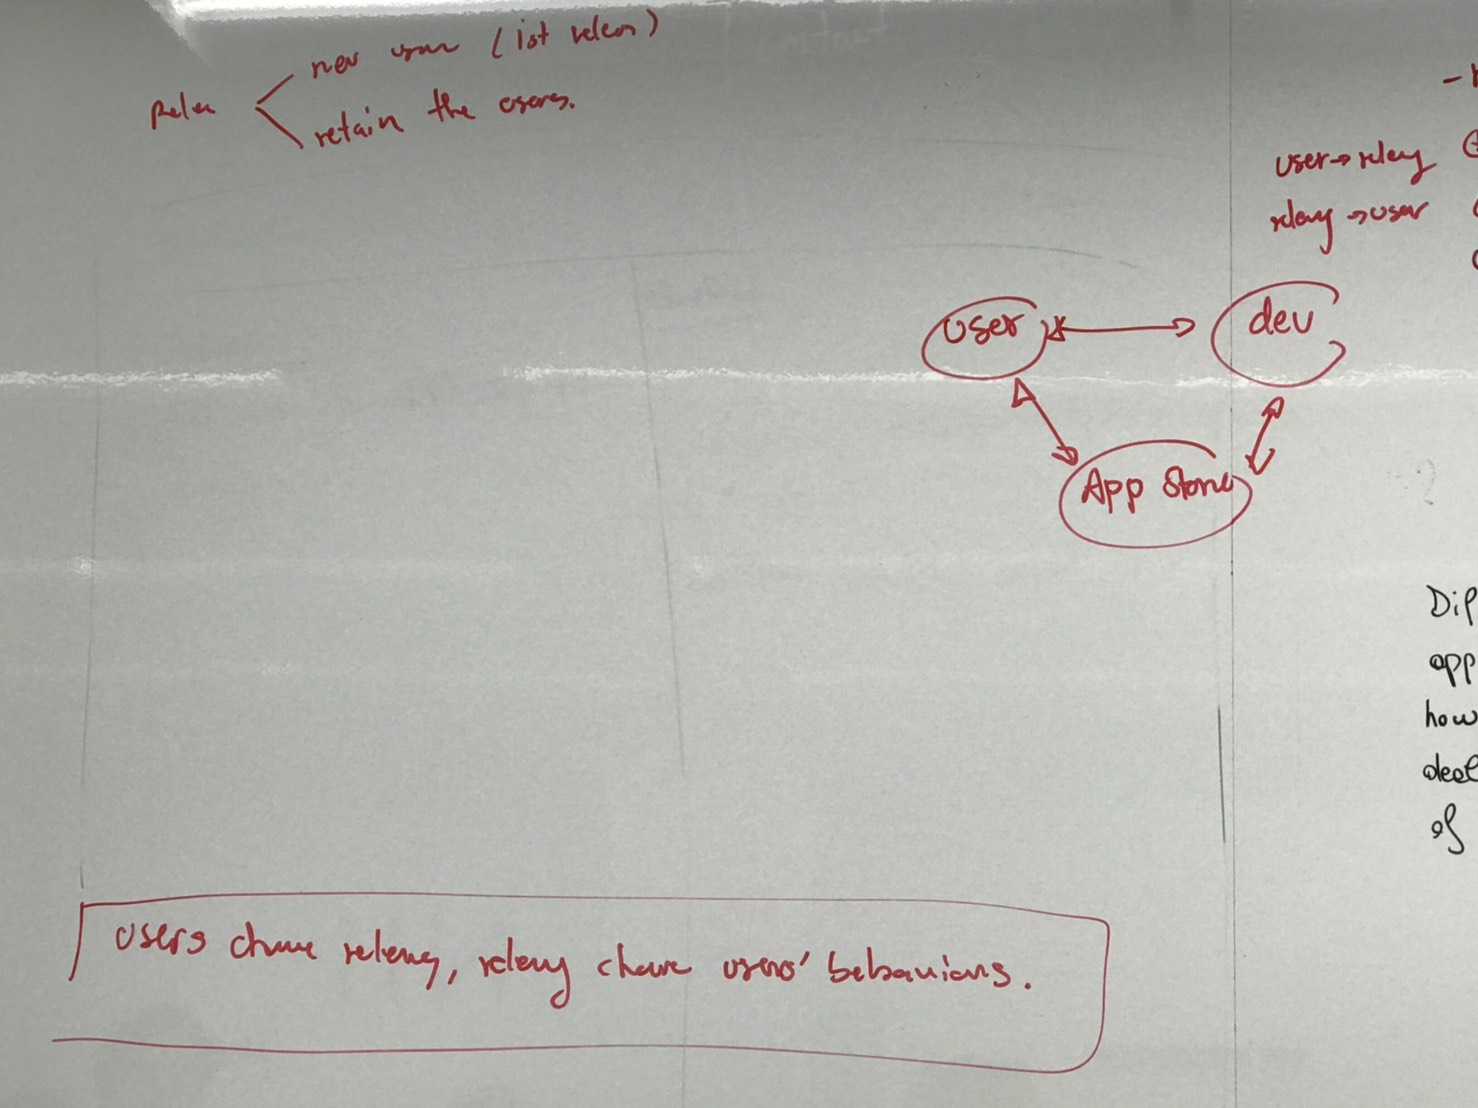 new user (1st
retain the users.
user→releng
releng→user
user
dev
App Store
Dif
app
how
deal
of
users change releng, releng change users' behaviors.